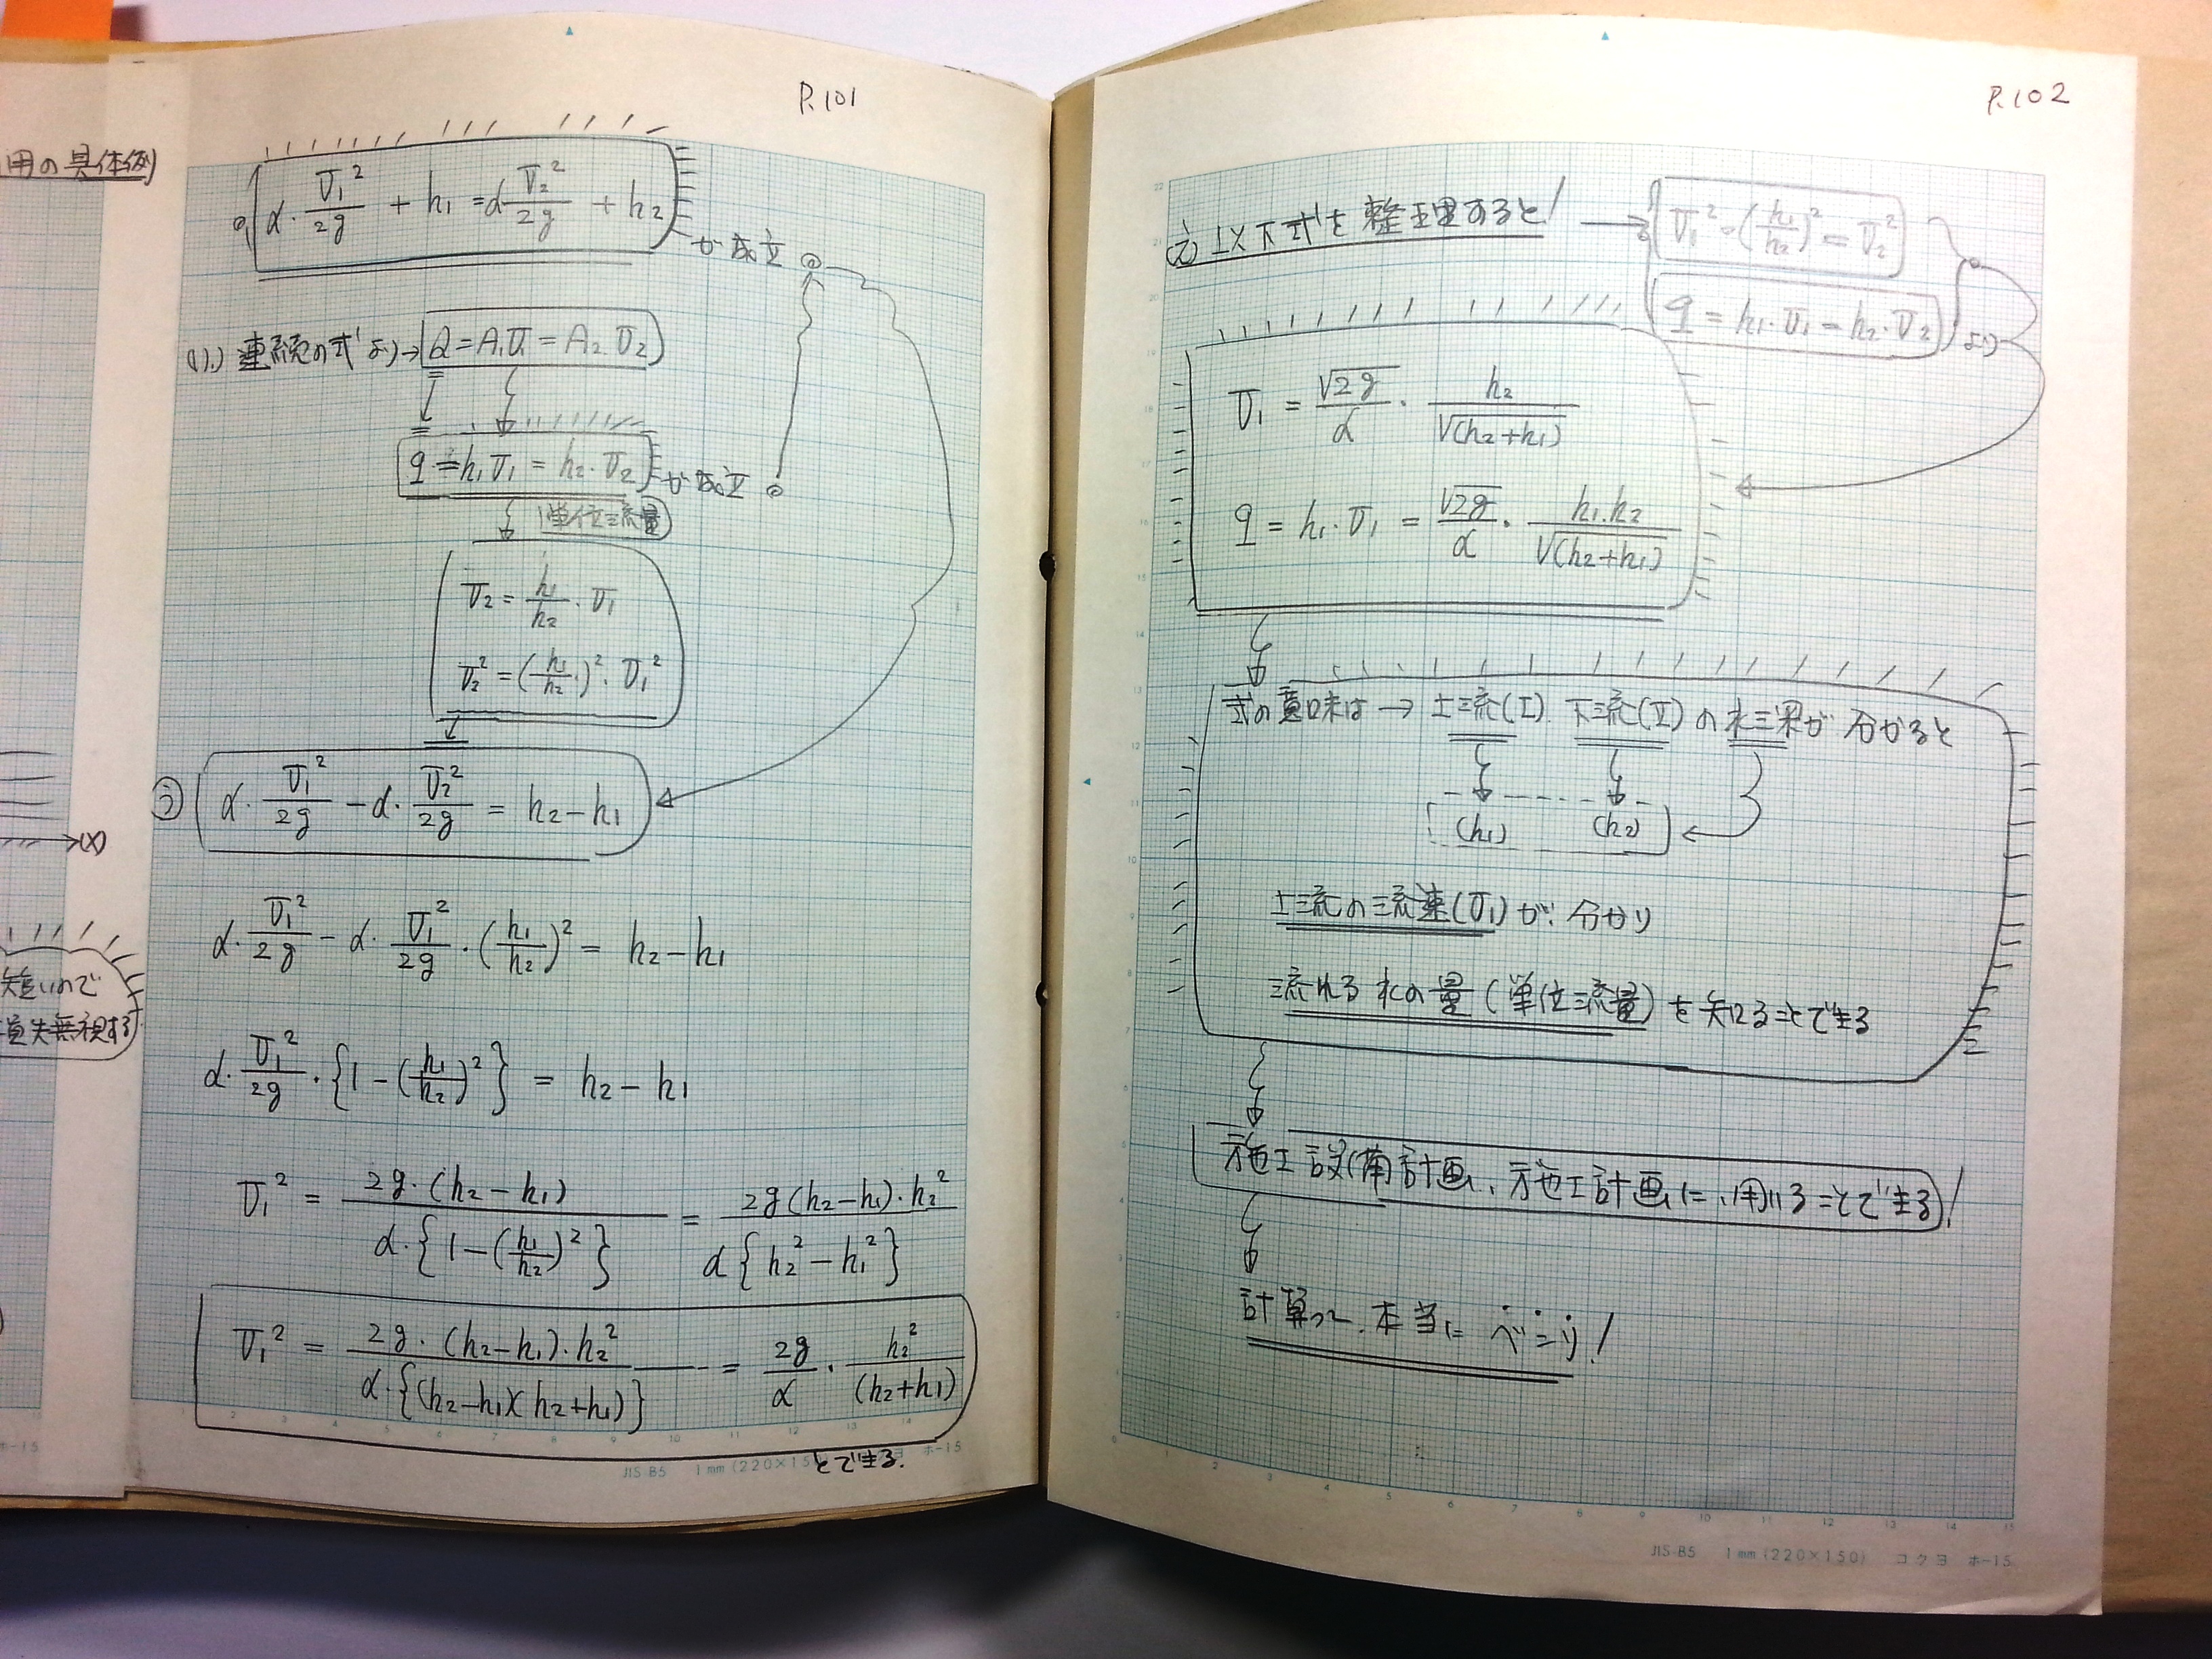 用の具体例
短いので
損失無視する
(x)
P.101
α・v̄₁²/2g + h₁ = α v̄₂²/2g + h₂
が成立
(1).) 連続の式より→ Q = A₁v̄₁ = A₂・v̄₂
q = h₁v̄₁ = h₂・v̄₂ が成立
単位流量
v̄₂ = h₁/h₂・v̄₁
v̄₂² = (h₁/h₂)²・v̄₁²
α・v̄₁²/2g − α・v̄₂²/2g = h₂ − h₁
α・v̄₁²/2g − α・v̄₁²/2g・(h₁/h₂)² = h₂ − h₁
α・v̄₁²/2g・{1 − (h₁/h₂)²} = h₂ − h₁
v̄₁² = 2g・(h₂ − h₁)/α・{1 − (h₁/h₂)²} = 2g(h₂ − h₁)・h₂²/α{h₂² − h₁²}
v̄₁² = 2g・(h₂ − h₁)・h₂²/α・{(h₂ − h₁)(h₂ + h₁)} = 2g/α・h₂²/(h₂ + h₁)
とできる.
JIS-B5 1mm (220×15 ホ-15
P.102
以下式を整理すると!
v̄₁²・(h₁/h₂)² = v̄₂²
q = h₁・v̄₁ = h₂・v̄₂ より
v̄₁ = √2g/α・h₂/√(h₂+h₁)
q = h₁・v̄₁ = √2g/α・h₁.h₂/√(h₂+h₁)
式の意味は → 上流(I). 下流(II)の水深が分かると
(h₁) (h₂)
上流の流速(v̄₁)が.分かり
流れる水の量(単位流量)を知ることできる
施工設備計画、施工計画に、用いることできる!
計算って.本当に べんり!
JIS-B5 1mm (220×150) コクヨ ホ-15